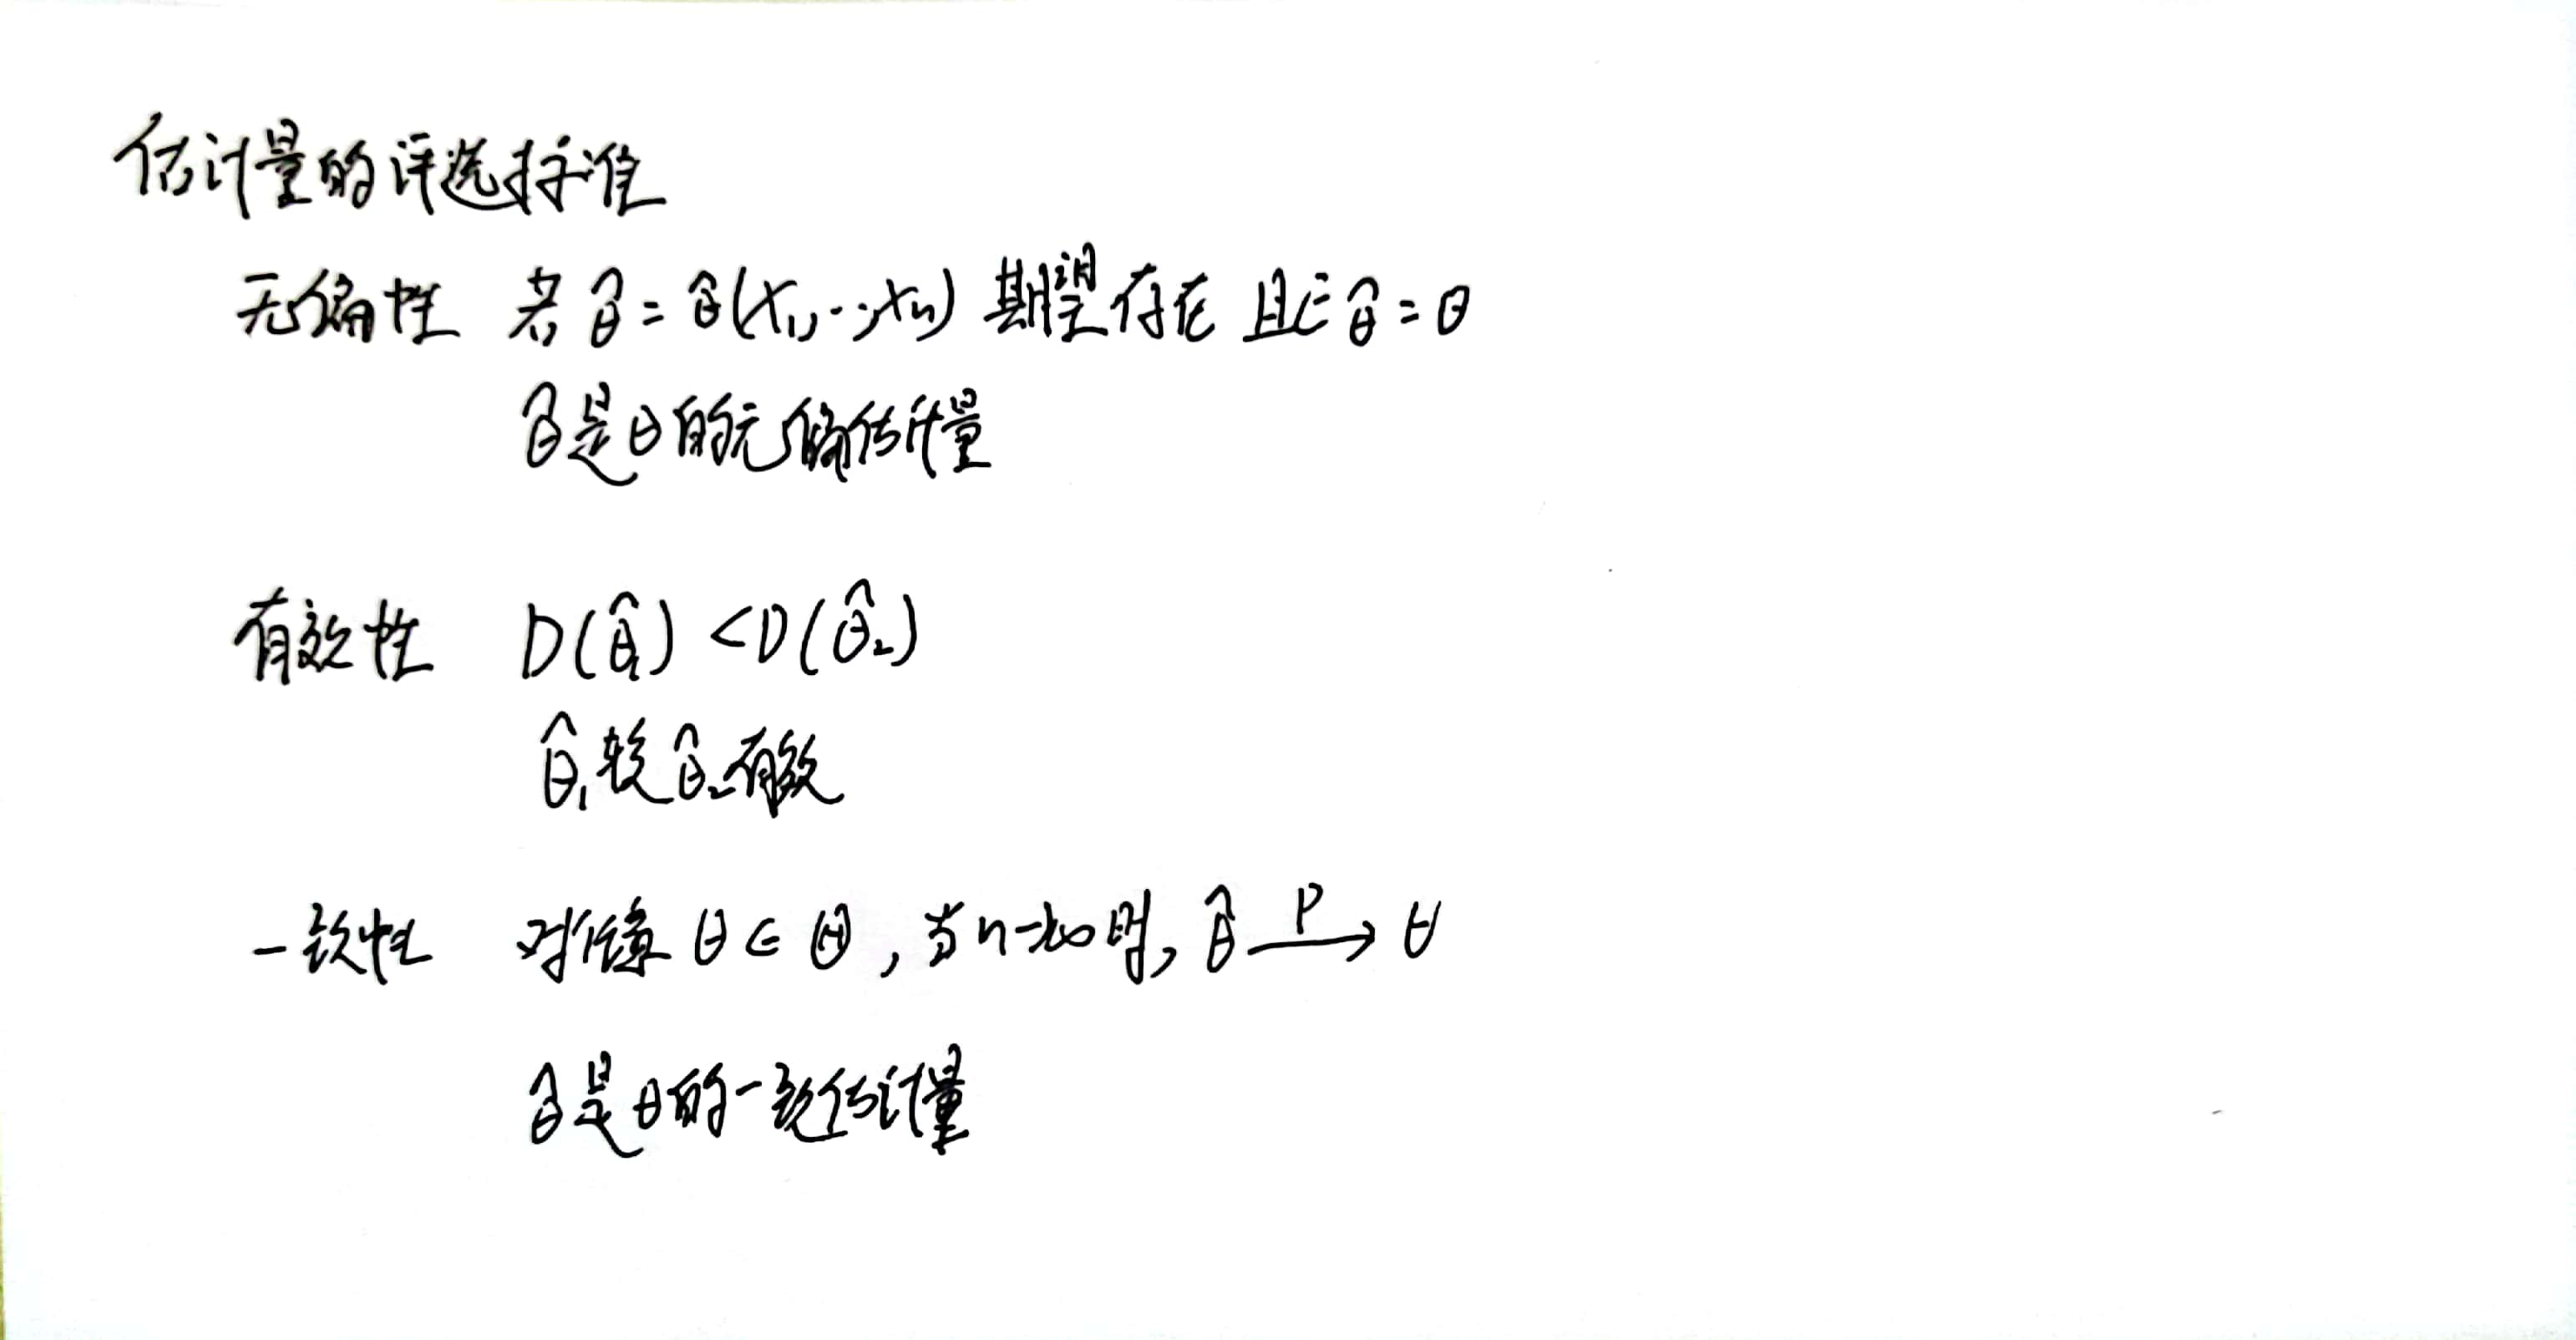 估计量的评选标准
无偏性 若 θ̂ = θ̂(X₁,…,Xₙ) 期望存在 且E θ̂ = θ
θ̂是θ的无偏估计量
有效性 D(θ̂₁) < D(θ̂₂)
θ̂₁较θ̂₂有效
一致性 对任意 θ ∈ Θ, 当n→∞时, θ̂ —P→ θ
θ̂是θ的一致估计量